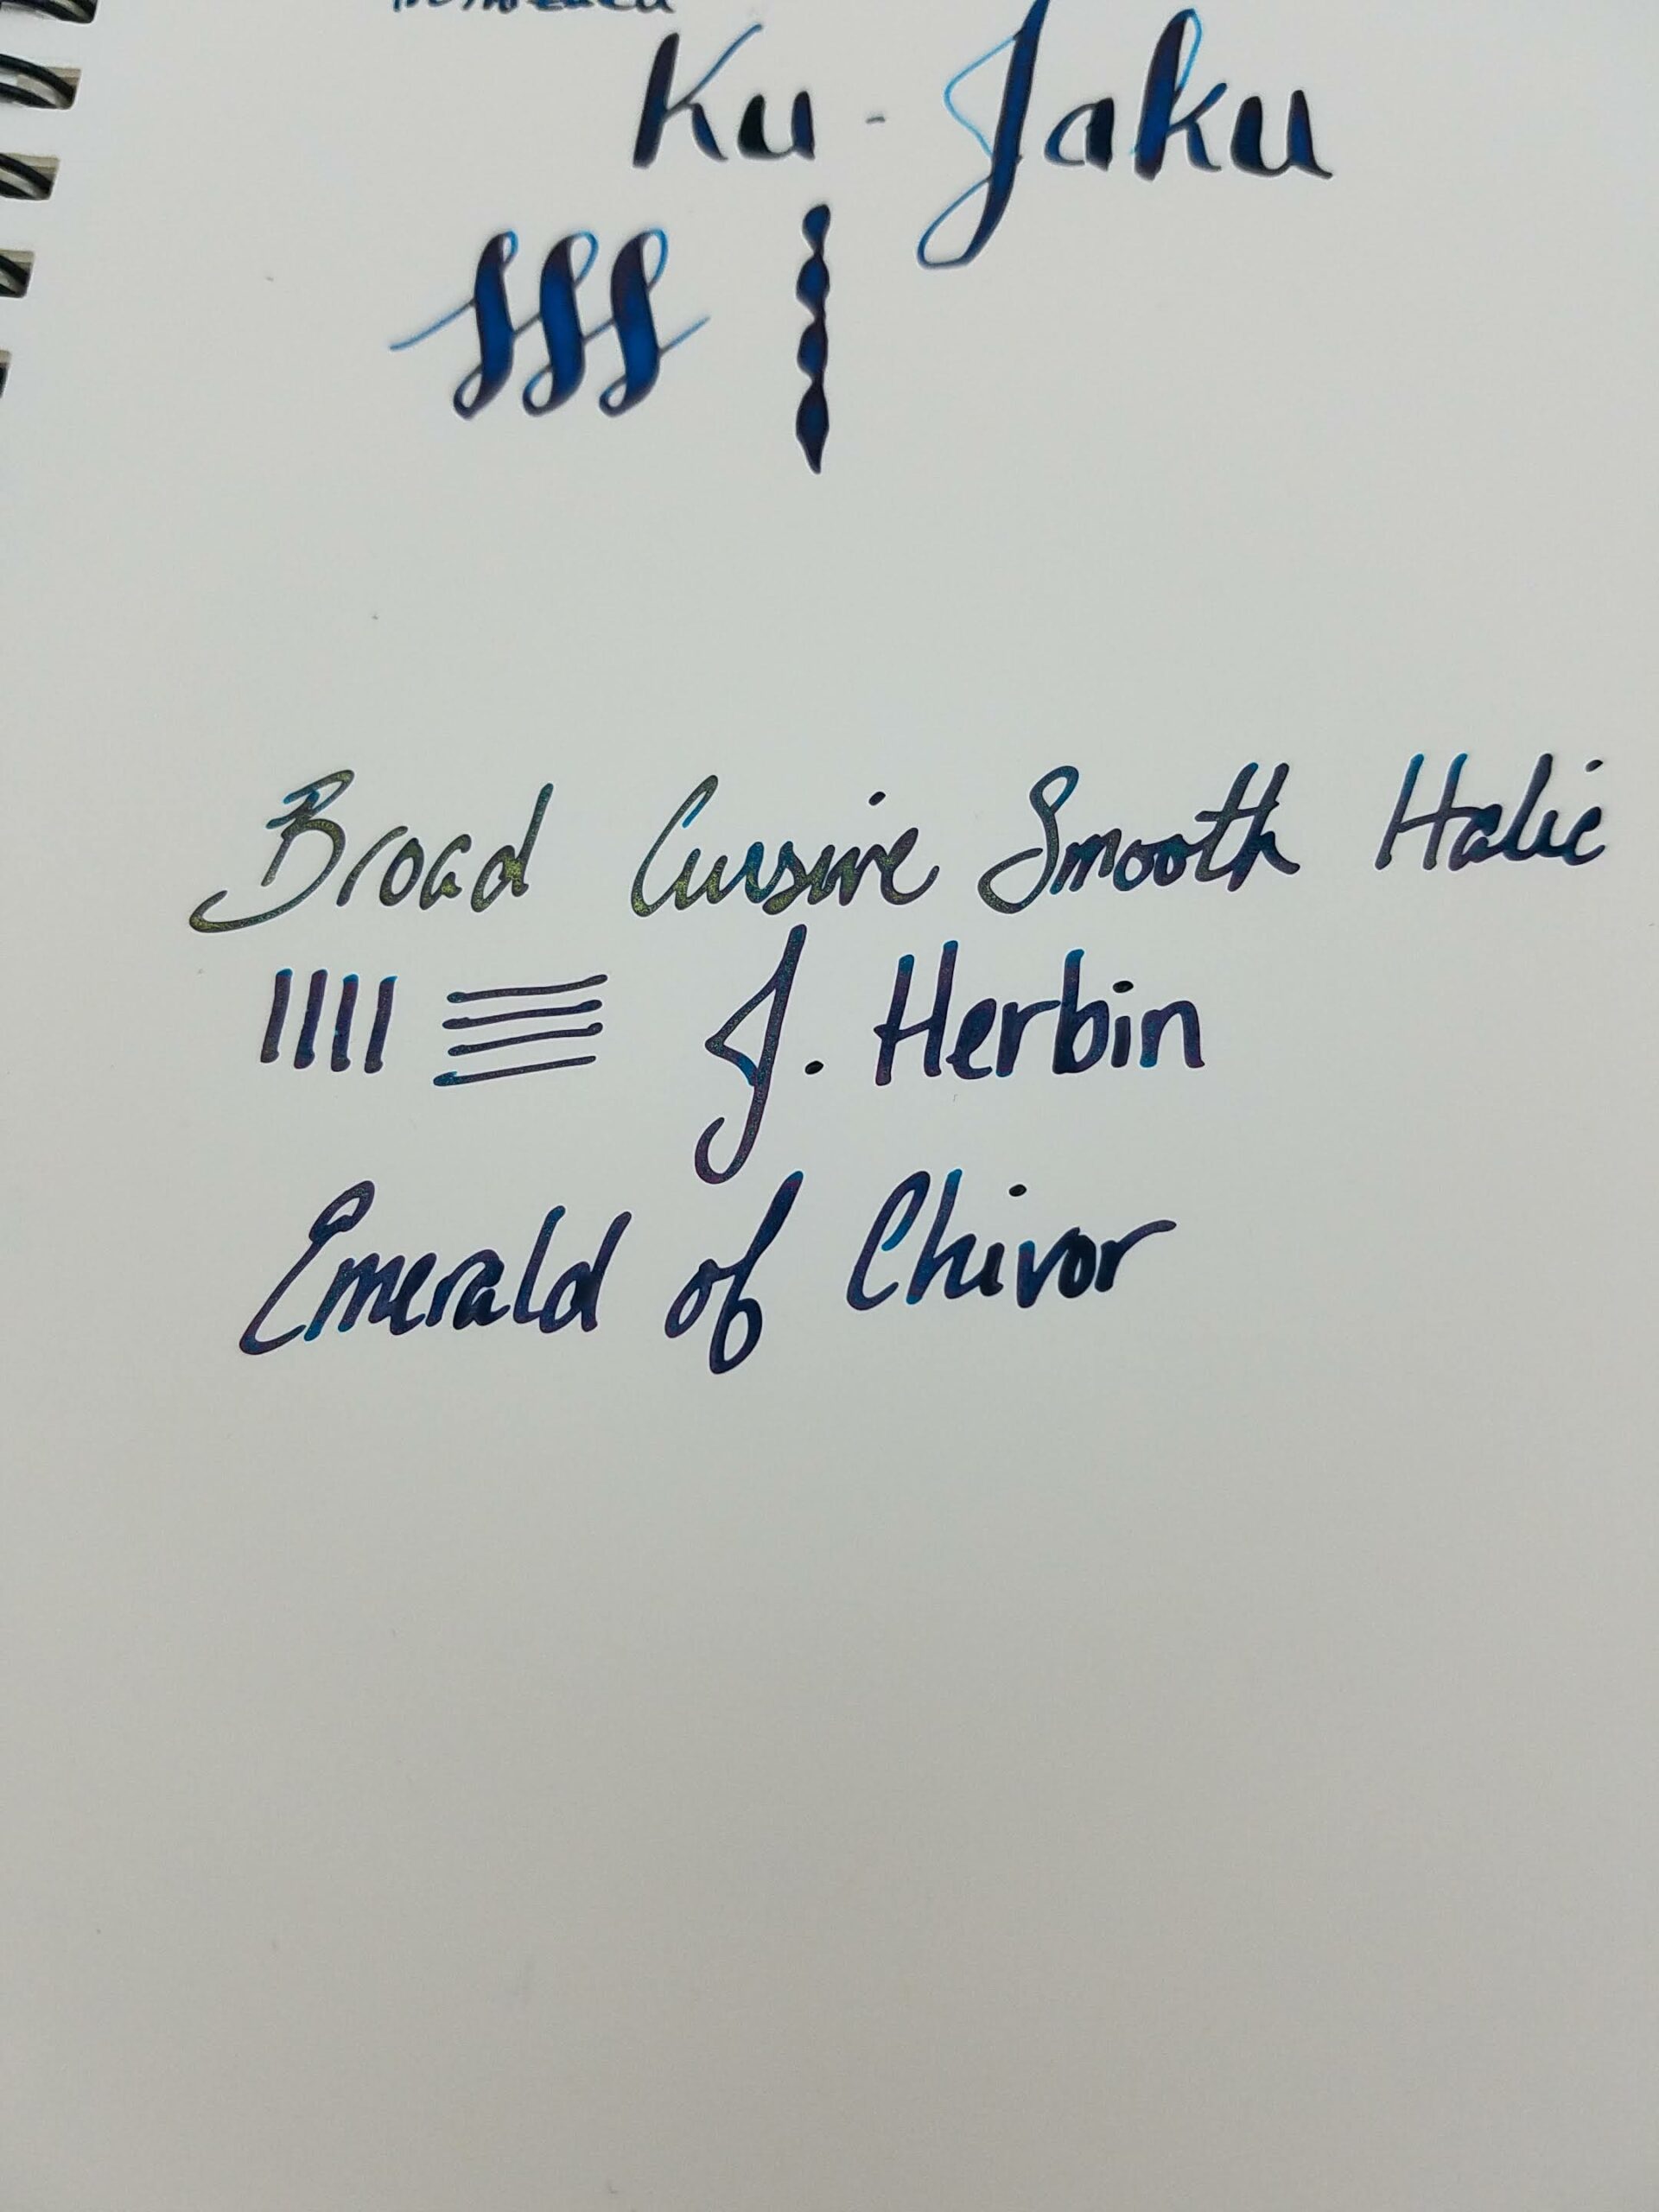 Ku-Jaku
Broad Cursive Smooth Italic
J. Herbin
Emerald of Chivor